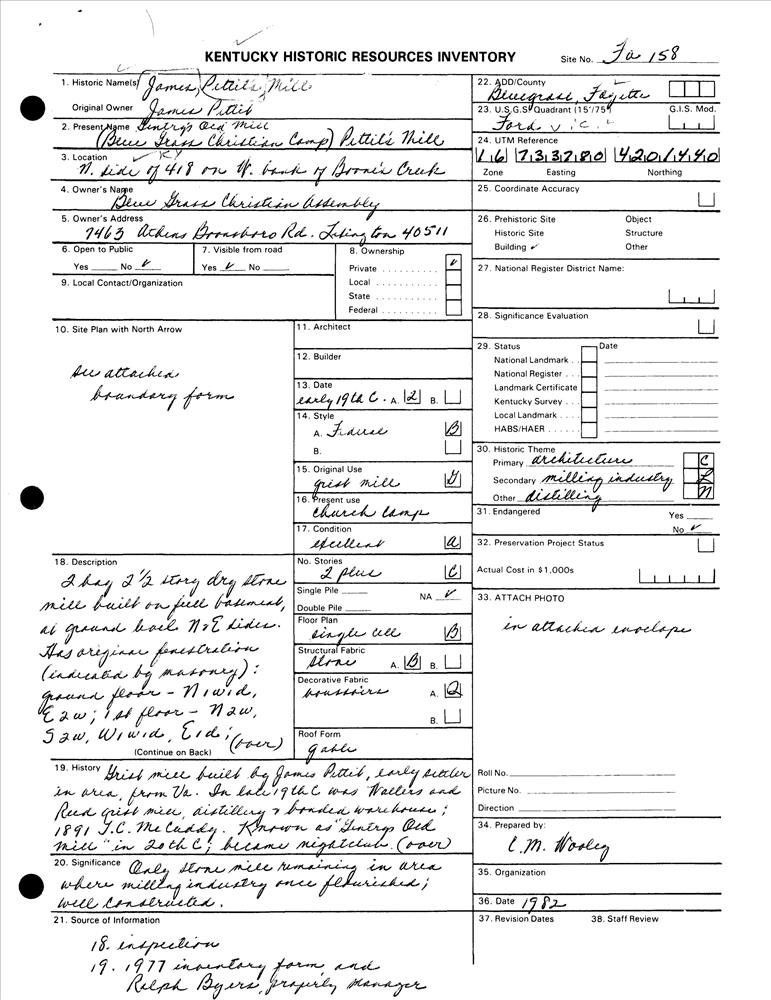 KENTUCKY HISTORIC RESOURCES INVENTORY
Site No. Fa 158
1. Historic Name(s) James Pettit's Mill
Original Owner James Pettit
2. Present Name Gentry's Old Mill
(Blue Grass Christian Camp) Pettit's Mill
3. Location KY
N. side of 418 on W. bank of Boone's Creek
4. Owner's Name
Blue Grass Christian Assembly
5. Owner's Address
7463 Athens Boonsboro Rd. Lexington 40511
6. Open to Public
Yes No ✓
7. Visible from road
Yes ✓ No
8. Ownership
Private ✓
Local
State
Federal
9. Local Contact/Organization
10. Site Plan with North Arrow
see attached
boundary form
11. Architect
12. Builder
13. Date
early 19th C. A. 2 B.
14. Style
A. Federal B
B.
15. Original Use
grist mill G
16. Present use
church camp
17. Condition
excellent A
No. Stories
2 plus C
Single Pile
Double Pile
NA ✓
Floor Plan
single cell B
Structural Fabric
stone A. B B.
Decorative Fabric
voussoirs A. Q
B.
Roof Form
gable
18. Description
2 bay 2 1/2 story dry stone
mill built on full basement,
at ground level N & E sides.
Has original fenestration
(indicated by masonry):
ground floor - N 1w1d,
E 2w; 1st floor - N 2w,
S 2w, W 1w1d, E 1d; (over)
(Continue on Back)
19. History Grist mill built by James Pettit, early settler
in area, from Va. In late 19th C was Wallers and
Reed grist mill, distillery & bonded warehouse;
1891 T.C. McCaddy. Known as "Gentrys Old
Mill" in 20th C; became nightclub. (over)
20. Significance Only stone mill remaining in area
where milling industry once flourished;
well constructed.
21. Source of Information
18. inspection
19. 1977 inventory form and
Ralph Byers, property manager
22. ADD/County
Bluegrass, Fayette
23. U.S.G.S. Quadrant (15'/75')
Ford
G.I.S. Mod.
24. UTM Reference
16 733780 4201440
Zone Easting Northing
25. Coordinate Accuracy
26. Prehistoric Site Object
Historic Site Structure
Building ✓ Other
27. National Register District Name:
28. Significance Evaluation
29. Status Date
National Landmark
National Register
Landmark Certificate
Kentucky Survey
Local Landmark
HABS/HAER
30. Historic Theme
Primary architecture C
Secondary milling industry L
Other distilling N
31. Endangered Yes
No ✓
32. Preservation Project Status
Actual Cost in $1,000s
33. ATTACH PHOTO
in attached envelope
Roll No.
Picture No.
Direction
34. Prepared by:
C.M. Wooley
35. Organization
36. Date 1982
37. Revision Dates 38. Staff Review